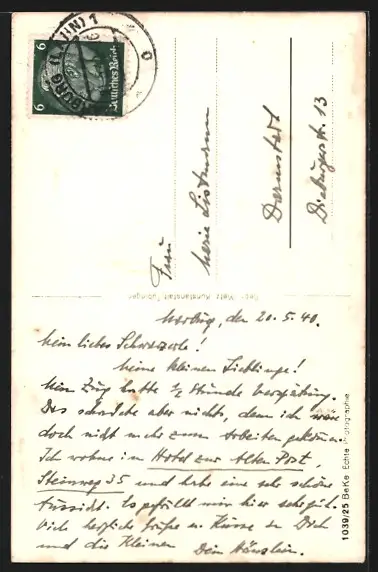 MARBURG (LAHN) 1
6 6
Deutsches Reich
Frau
Marie Listmann
Darmstadt
Dieburgerstr. 13
Gebr. Metz Kunstanstalt Tübingen
1039/25 BeKe Echte Photographie
Marburg, den 20.5.40.
Mein liebes Schwarzerle!
Meine kleinen Lieblinge!
Mein Zug hatte ½ Stunde Verspätung.
Das schadete aber nichts, denn ich wäre
doch nicht mehr zum Arbeiten gekommen.
Ich wohne im Hotel zur Alten Post,
Steinweg 35 und habe eine sehr schöne
Aussicht. Es gefällt mir hier sehr gut.
Viele herzliche Grüße u. Küsse an Dich
und die Kleinen Dein Hänslein.